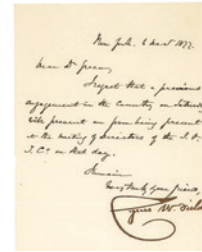 New York. 6 March 1877.
Dear Dr Green,
I regret that a previous
engagement in the Country on Saturday
will prevent me from being present
at the meeting of Directors of the
T. Co. on that day.
I remain
Very truly your friend,
Cyrus W. Field